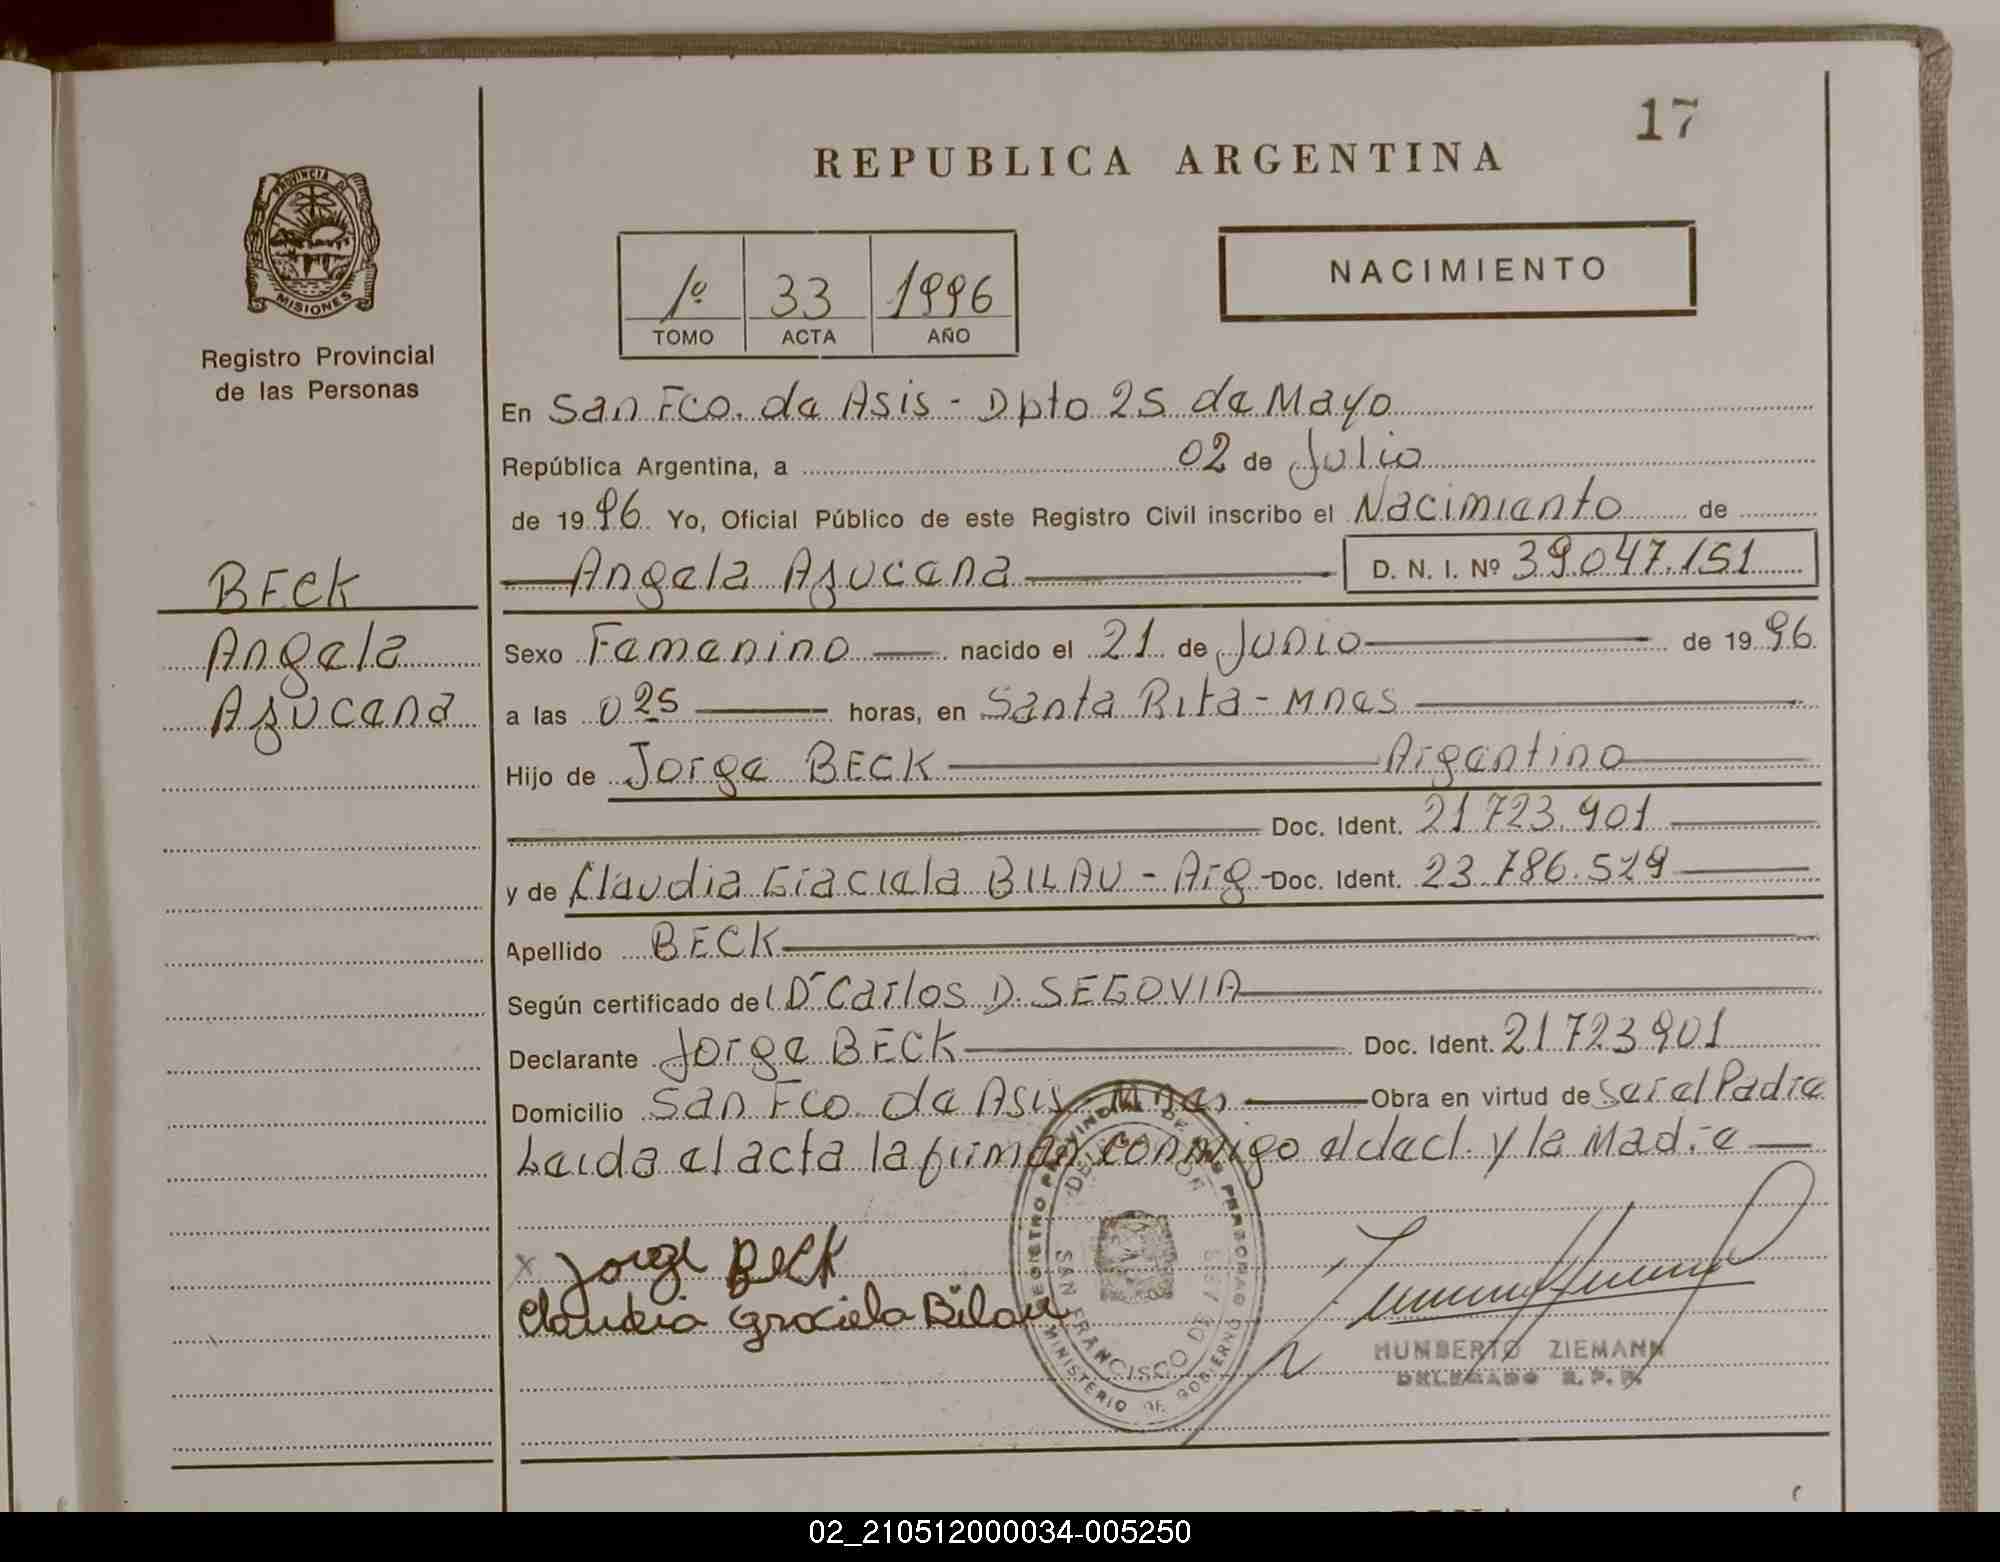 17
REPUBLICA ARGENTINA
PROVINCIA DE
MISIONES
Registro Provincial
de las Personas
1º 33 1996
TOMO ACTA AÑO
NACIMIENTO
En San Fco. de Asis - Dpto 25 de Mayo
República Argentina, a 02 de Julio
de 1996 Yo, Oficial Público de este Registro Civil inscribo el Nacimiento de
BECK
Angela
Azucena
Angela Azucena D. N. I. Nº 39.047.151
Sexo Femenino nacido el 21 de Junio de 1996
a las 0 25 horas, en Santa Rita - Mnes
Hijo de Jorge BECK Argentino
Doc. Ident. 21.723.901
y de Claudia Graciela BILAU - Arg - Doc. Ident. 23.786.529
Apellido BECK
Según certificado del Dr Carlos D. SEGOVIA
Declarante Jorge BECK Doc. Ident. 21.723.901
Domicilio San Fco de Asis - Mnes Obra en virtud de ser el Padre
Leida el acta la firman conmigo el decl. y la Madre
x Jorge Beck
Claudia Graciela Bilau
REGISTRO PROVINCIAL DE LAS PERSONAS
DELEGACION
SAN FRANCISCO DE ASIS
MINISTERIO DE GOBIERNO
HUMBERTO ZIEMANN
DELEGADO R. P. P.
02_210512000034-005250